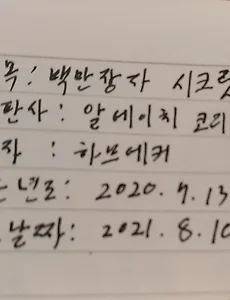 목: 백만장자 시크릿
판사: 알에이치 코리
자 : 하브에커
는 년도: 2020. 7. 13
날짜: 2021. 8. 10